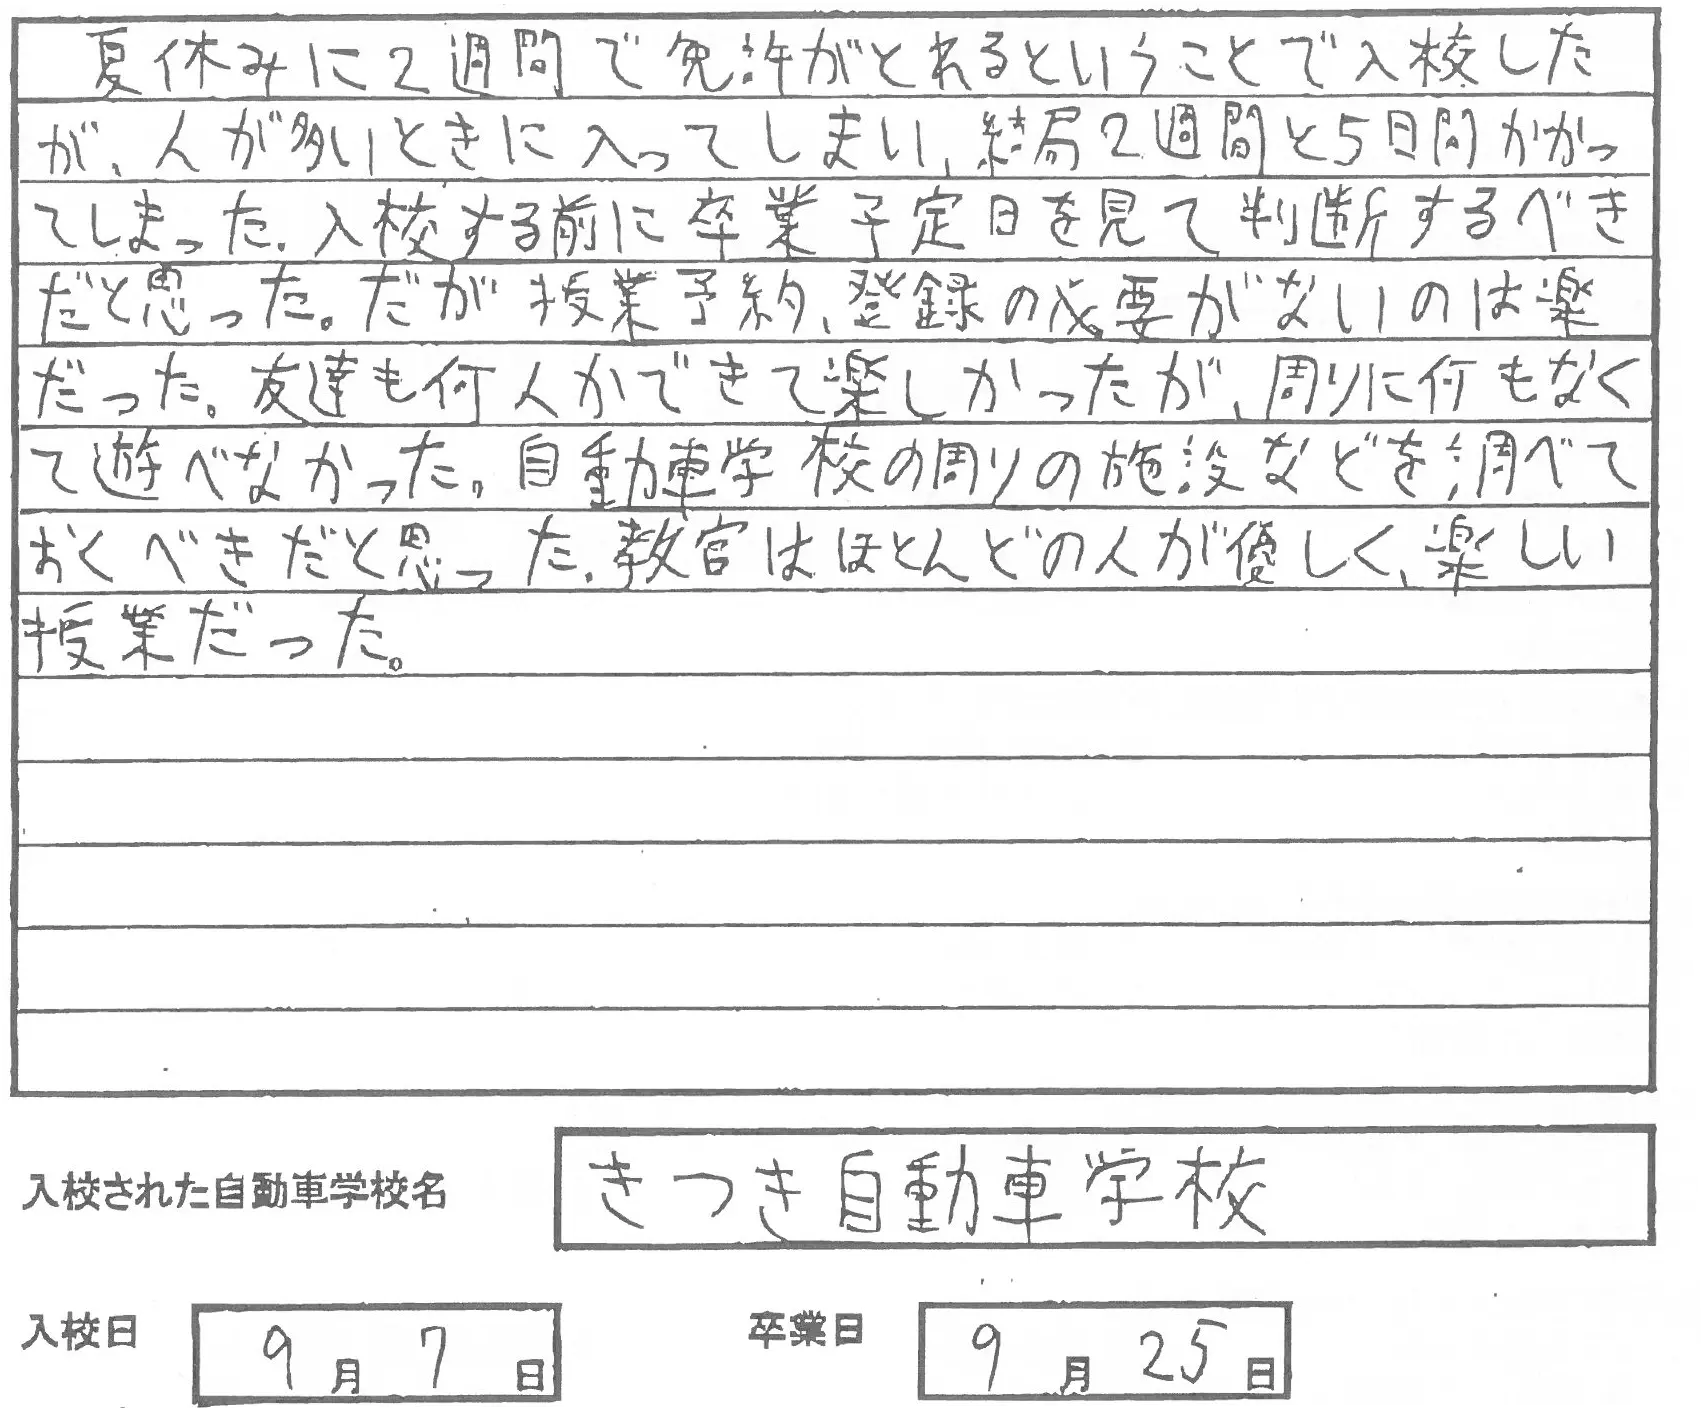 夏休みに2週間で免許がとれるということで入校した
が、人が多いときに入ってしまい、結局2週間と5日間かかっ
てしまった。入校する前に卒業予定日を見て判断するべき
だと思った。だが授業予約、登録の必要がないのは楽
だった。友達も何人かできて楽しかったが、周りに何もなく
て遊べなかった。自動車学校の周りの施設などを調べて
おくべきだと思った。教官はほとんどの人が優しく、楽しい
授業だった。
入校された自動車学校名 きつき自動車学校
入校日 9月7日 卒業日 9月25日